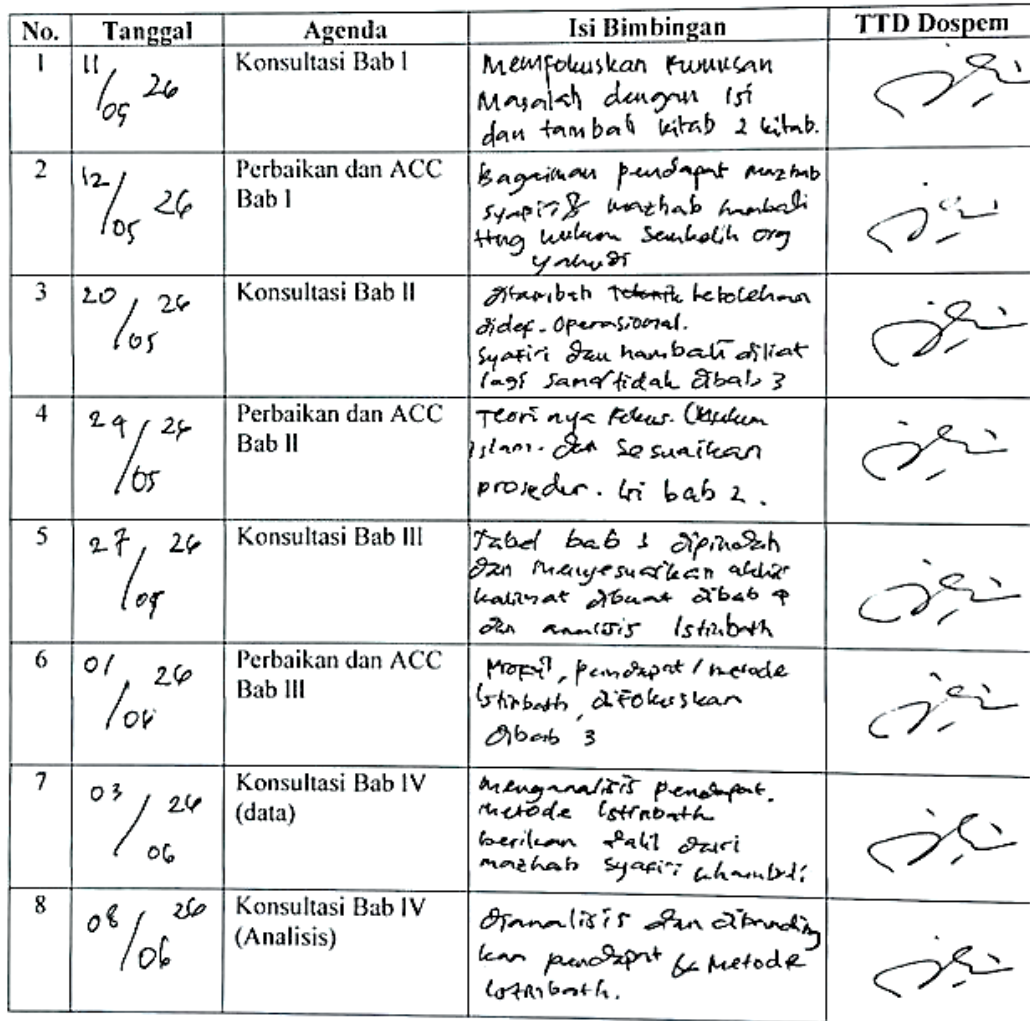 No. Tanggal Agenda Isi Bimbingan TTD Dospem
1 11/05 26 Konsultasi Bab I Memfokuskan rumusan
Masalah dengan isi
dan tambah kitab 2 kitab.
2 12/05 26 Perbaikan dan ACC Bagaiman pendapat mazhab
Bab I syafi'i & mazhab hambali
ttng hukum Sembelih org
yahudi
3 20/05 26 Konsultasi Bab II ditambah kebolehan
didef. Operasional.
Syafi'i dan hambali diliat
lagi sama/tidak dibab 3
4 /05 26 Perbaikan dan ACC Teori nya Fokus. Hukum
Bab II islam. dan Sesuaikan
prosedur. bab 2.
5 27/05 26 Konsultasi Bab III Tabel bab dipindah
dan menyesuaikan akhir
kalimat dibuat dibab 4
dan analisis Istinbath
6 01/06 26 Perbaikan dan ACC Profil, pendapat / metode
Bab III Istinbath, difokuskan
dibab 3
7 03/06 26 Konsultasi Bab IV menganalisis pendapat.
(data) metode Istinbath
berikan dalil dari
mazhab syafi'i & hambali
8 08/06 26 Konsultasi Bab IV dianalisis dan dibanding
(Analisis) kan pendapat & Metode
istinbath.